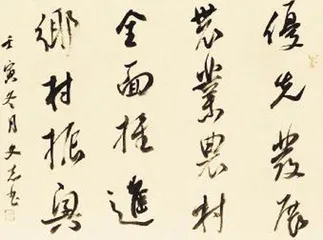 優先發展
農業農村
全面推進
鄉村振興
壬寅冬月文志書